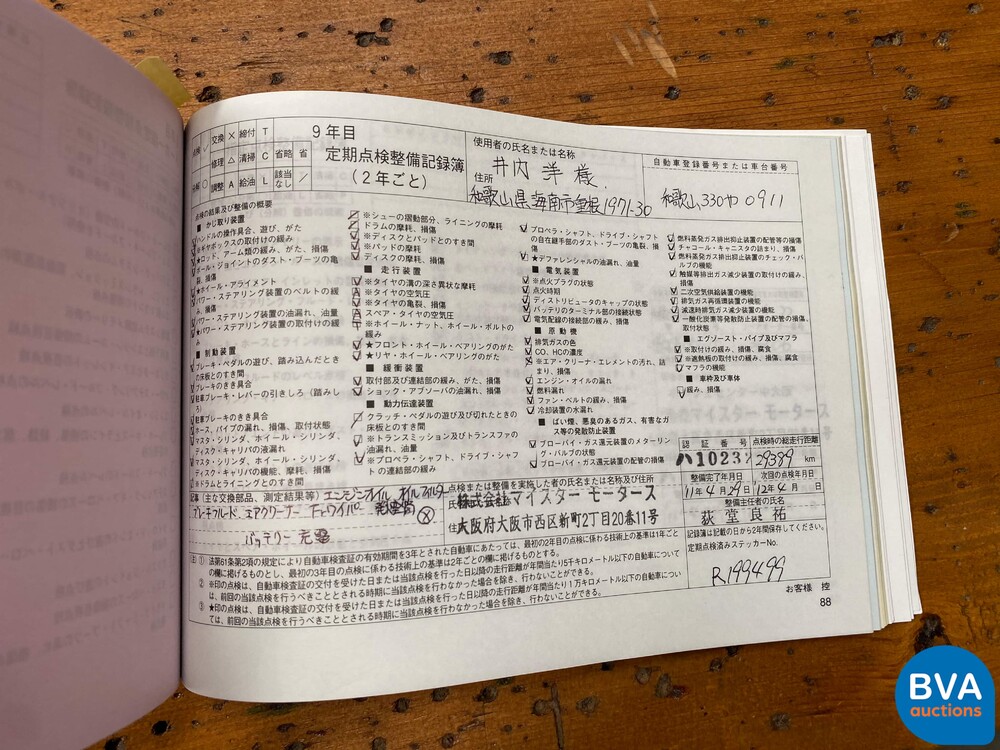 点検 ✓ 交換 × 締付 T
分解 ○ 修理 △ 清掃 C 省略 省
調整 A 給油 L 該当なし /
9年目
定期点検整備記録簿
(2年ごと)
使用者の氏名または名称
井内 洋 様
住所
和歌山県海南市重根1971-30
自動車登録番号または車台番号
和歌山330や0911
点検の結果及び整備の概要
■ かじ取り装置
ハンドルの操作具合、遊び、がた
※ギヤボックスの取付けの緩み
★ロッド、アーム類の緩み、がた、損傷
ボール・ジョイントのダスト・ブーツの亀裂、損傷
★ホイール・アライメント
パワー・ステアリング装置のベルトの緩み、損傷
パワー・ステアリング装置の油漏れ、油量
★パワー・ステアリング装置の取付けの緩み
■ 制動装置
ブレーキ・ペダルの遊び、踏み込んだときの床板とのすき間
ブレーキのきき具合
駐車ブレーキ・レバーの引きしろ(踏みしろ)
駐車ブレーキのきき具合
ホース、パイプの漏れ、損傷、取付状態
マスタ・シリンダ、ホイール・シリンダ、ディスク・キャリパの液漏れ
マスタ・シリンダ、ホイール・シリンダ、ディスク・キャリパの機能、摩耗、損傷
※ドラムとライニングとのすき間
※シューの摺動部分、ライニングの摩耗
ドラムの摩耗、損傷
※ディスクとパッドとのすき間
※パッドの摩耗
ディスクの摩耗、損傷
■ 走行装置
※タイヤの溝の深さ異状な摩耗
※タイヤの空気圧
※タイヤの亀裂、損傷
スペア・タイヤの空気圧
※ホイール・ナット、ホイール・ボルトの緩み
★フロント・ホイール・ベアリングのがた
★リヤ・ホイール・ベアリングのがた
■ 緩衝装置
取付部及び連結部の緩み、がた、損傷
ショック・アブソーバの油漏れ、損傷
■ 動力伝達装置
クラッチ・ペダルの遊び及び切れたときの床板とのすき間
※トランスミッション及びトランスファの油漏れ、油量
※プロペラ・シャフト、ドライブ・シャフトの連結部の緩み
プロペラ・シャフト、ドライブ・シャフトの自在継手部のダスト・ブーツの亀裂、損傷
★デファレンシャルの油漏れ、油量
■ 電気装置
※点火プラグの状態
点火時期
ディストリビュータのキャップの状態
バッテリのターミナル部の接続状態
電気配線の接続部の緩み、損傷
■ 原動機
排気ガスの色
CO、HCの濃度
※エア・クリーナ・エレメントの汚れ、詰まり、損傷
エンジン・オイルの漏れ
燃料漏れ
ファン・ベルトの緩み、損傷
冷却装置の水漏れ
■ ばい煙、悪臭のあるガス、有害なガス等の発散防止装置
ブローバイ・ガス還元装置のメターリング・バルブの状態
ブローバイ・ガス還元装置の配管の損傷
燃料蒸発ガス排出抑止装置の配管等の損傷
チャコール・キャニスタの詰まり、損傷
燃料蒸発ガス排出抑止装置のチェック・バルブの機能
触媒等排出ガス減少装置の取付けの緩み、損傷
二次空気供給装置の機能
排気ガス再循環装置の機能
減速時排気ガス減少装置の機能
一酸化炭素等発散防止装置の配管の損傷、取付状態
■ エグゾースト・パイプ及びマフラ
※取付けの緩み、損傷、腐食
※遮熱板の取付けの緩み、損傷、腐食
マフラの機能
■ 車枠及び車体
緩み、損傷
記事(主な交換部品、測定結果等) エンジンオイル オイルフィルター
ブレーキフルード エアクリーナー Frワイパー
バッテリー 充電
点検または整備を実施した者の氏名または名称及び住所
株式会社マイスター モータース
大阪府大阪市西区新町2丁目20番11号
認証番号 点検時の総走行距離
29389 km
整備完了年月日 次回の点検年月日
11年4月29日 12年4月 日
整備主任者の氏名
荻堂良祐
記録簿は記載の日から2年間保存してください。
定期点検済みステッカーNo.
R199499
お客様 控
88
(注) ① 法第61条第2項の規定により自動車検査証の有効期間を3年とされた自動車にあたっては、最初の2年目の点検に係わる技術上の基準は1年ごとの欄に掲げるものとし、最初の3年目の点検に係わる技術上の基準は2年ごとの欄に掲げるものとする。
② ※印の点検は、自動車検査証の交付を受けた日または当該点検を行った日以降の走行距離が年間当たり5千キロメートル以下の自動車については、前回の当該点検を行うべきこととされる時期に当該点検を行わなかった場合を除き、行わないことができる。
③ ★印の点検は、自動車検査証の交付を受けた日または当該点検を行った日以降の走行距離が年間当たり1万キロメートル以下の自動車については、前回の当該点検を行うべきこととされる時期に当該点検を行わなかった場合を除き、行わないことができる。
BVA
auctions